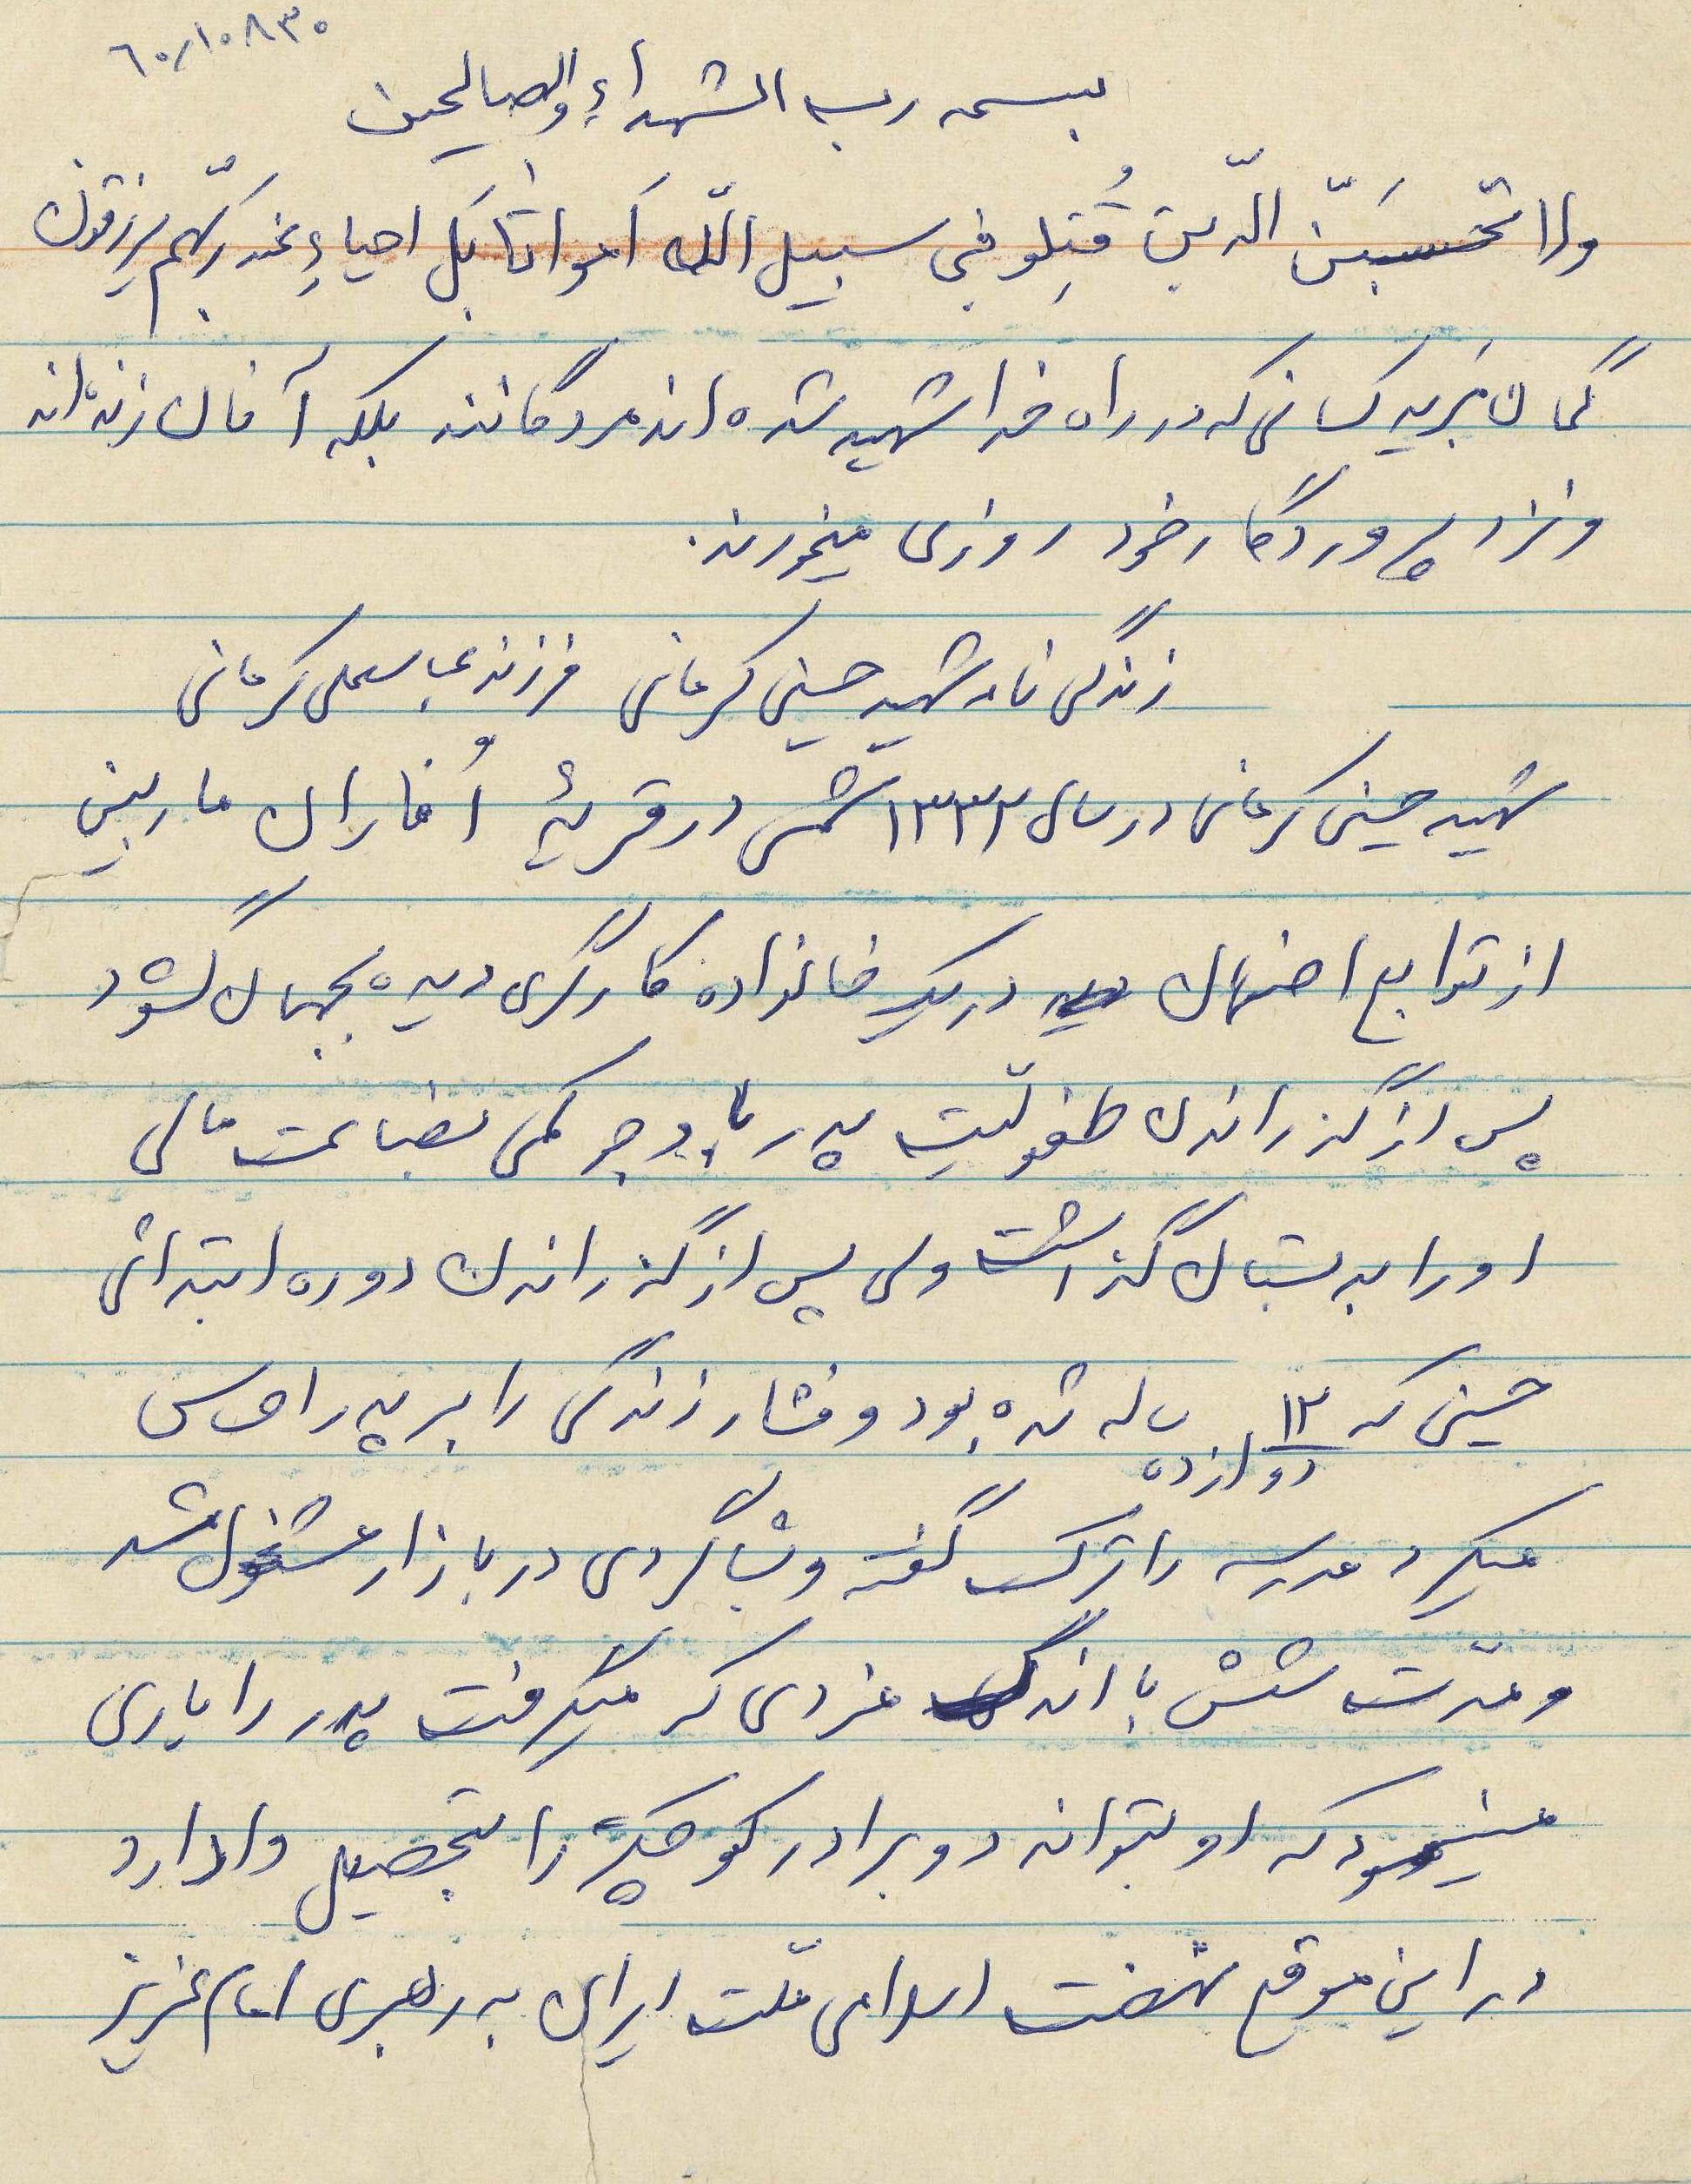 ۶۰/۱۰۸۳۰
بسمه رب الشهداءِ والصالحین
ولا تحسبَنّ الّذین قُتِلو في سبیل اللّه اَمواتاً بَل احیاءٍ عند ربّهم یرزقون
گمان نبرید کسانی که در راه خدا شهید شده اند مردگانند بلکه آنان زنده اند
ونزد پروردگار خود روزی میخورند.
زندگی نامه شهید حسین کرمانی فرزند عباسعلی کرمانی
شهید حسین کرمانی در سال ۱۳۳۲ شمسی در قریهٔ اُفاران ماربین
از توابع اصفهان در یک خانواده کارگری دیده بجهان گشود
پس از گذراندن طفولّیت پدر با وجود کمی بضاعت مالی
او را بدبستان گذاشت ولی پس از گذراندن دوره ابتدائی
حسین که ۱۲ ساله شده بود و فشار زندگی را بر پدر احساس
دوازده
میکرد مدرسه را ترک گفته و بشاگردی در بازار مشغول شد
و مدّت شش با اندک مزدی که میگرفت پدر را یاری
مینمود که او بتواند دو برادر کوچکتر را بتحصیل وادارد
در این موقع نهضت اسلامی ملّت ایران به رهبری امام عزیز